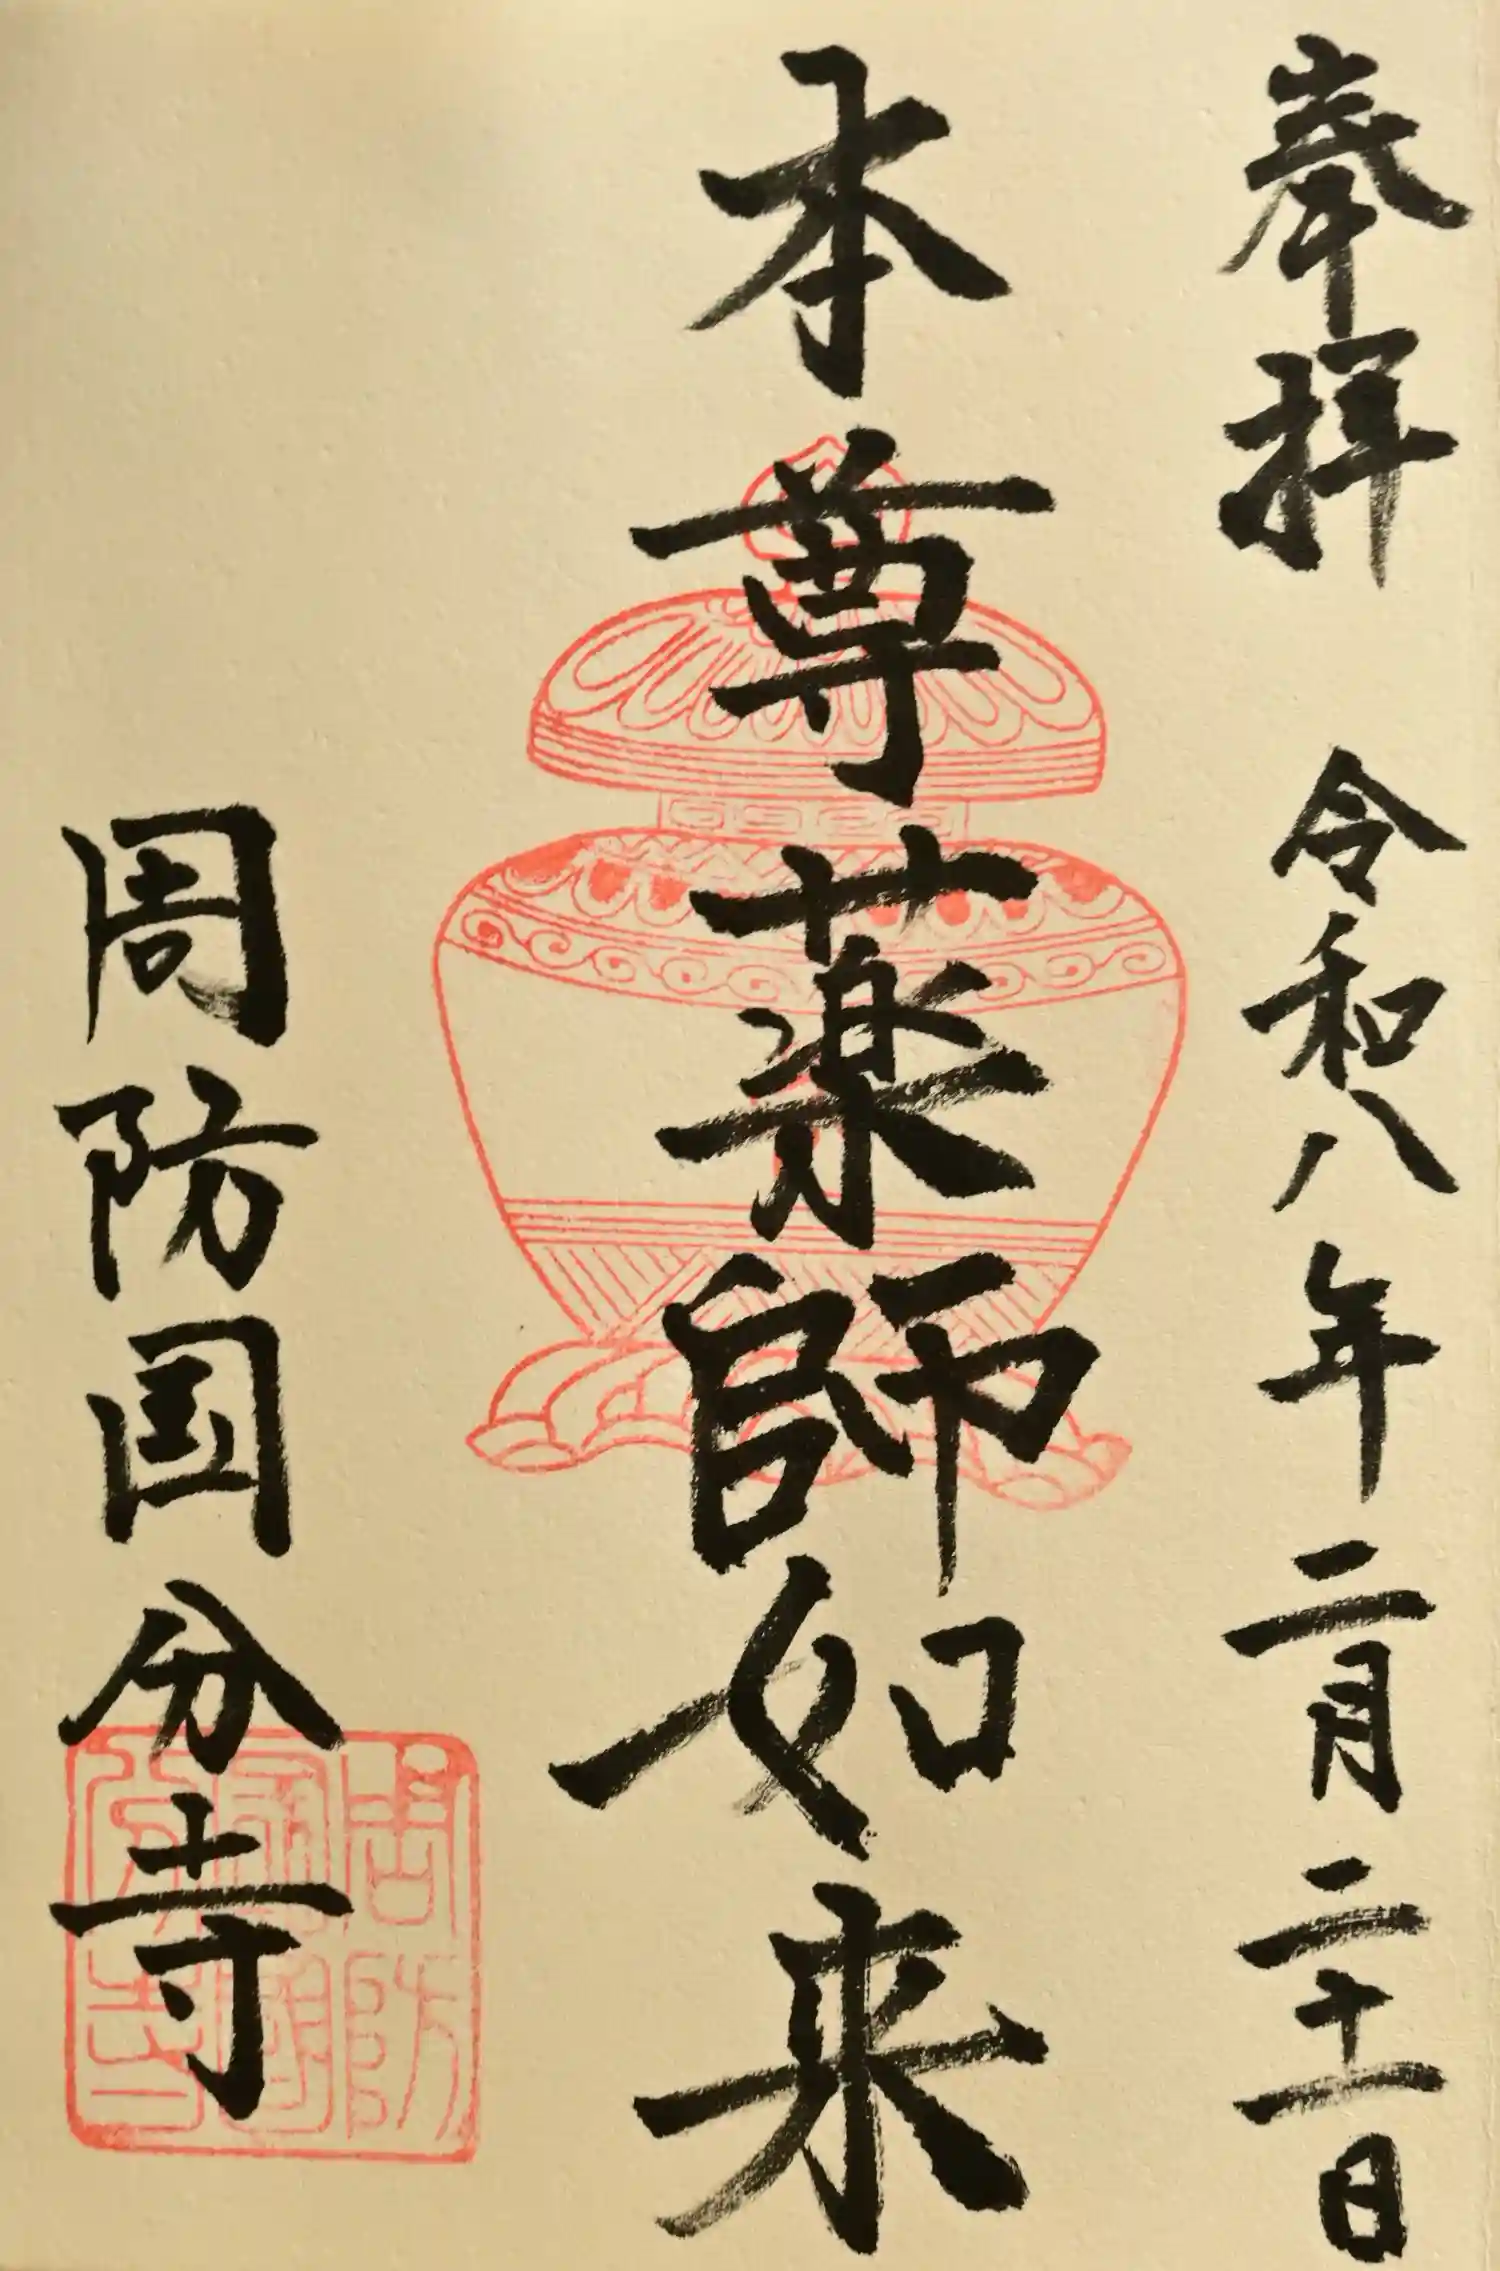 奉拝 令和八年二月二十一日
本尊薬師如来
周防国分寺
周防國分寺